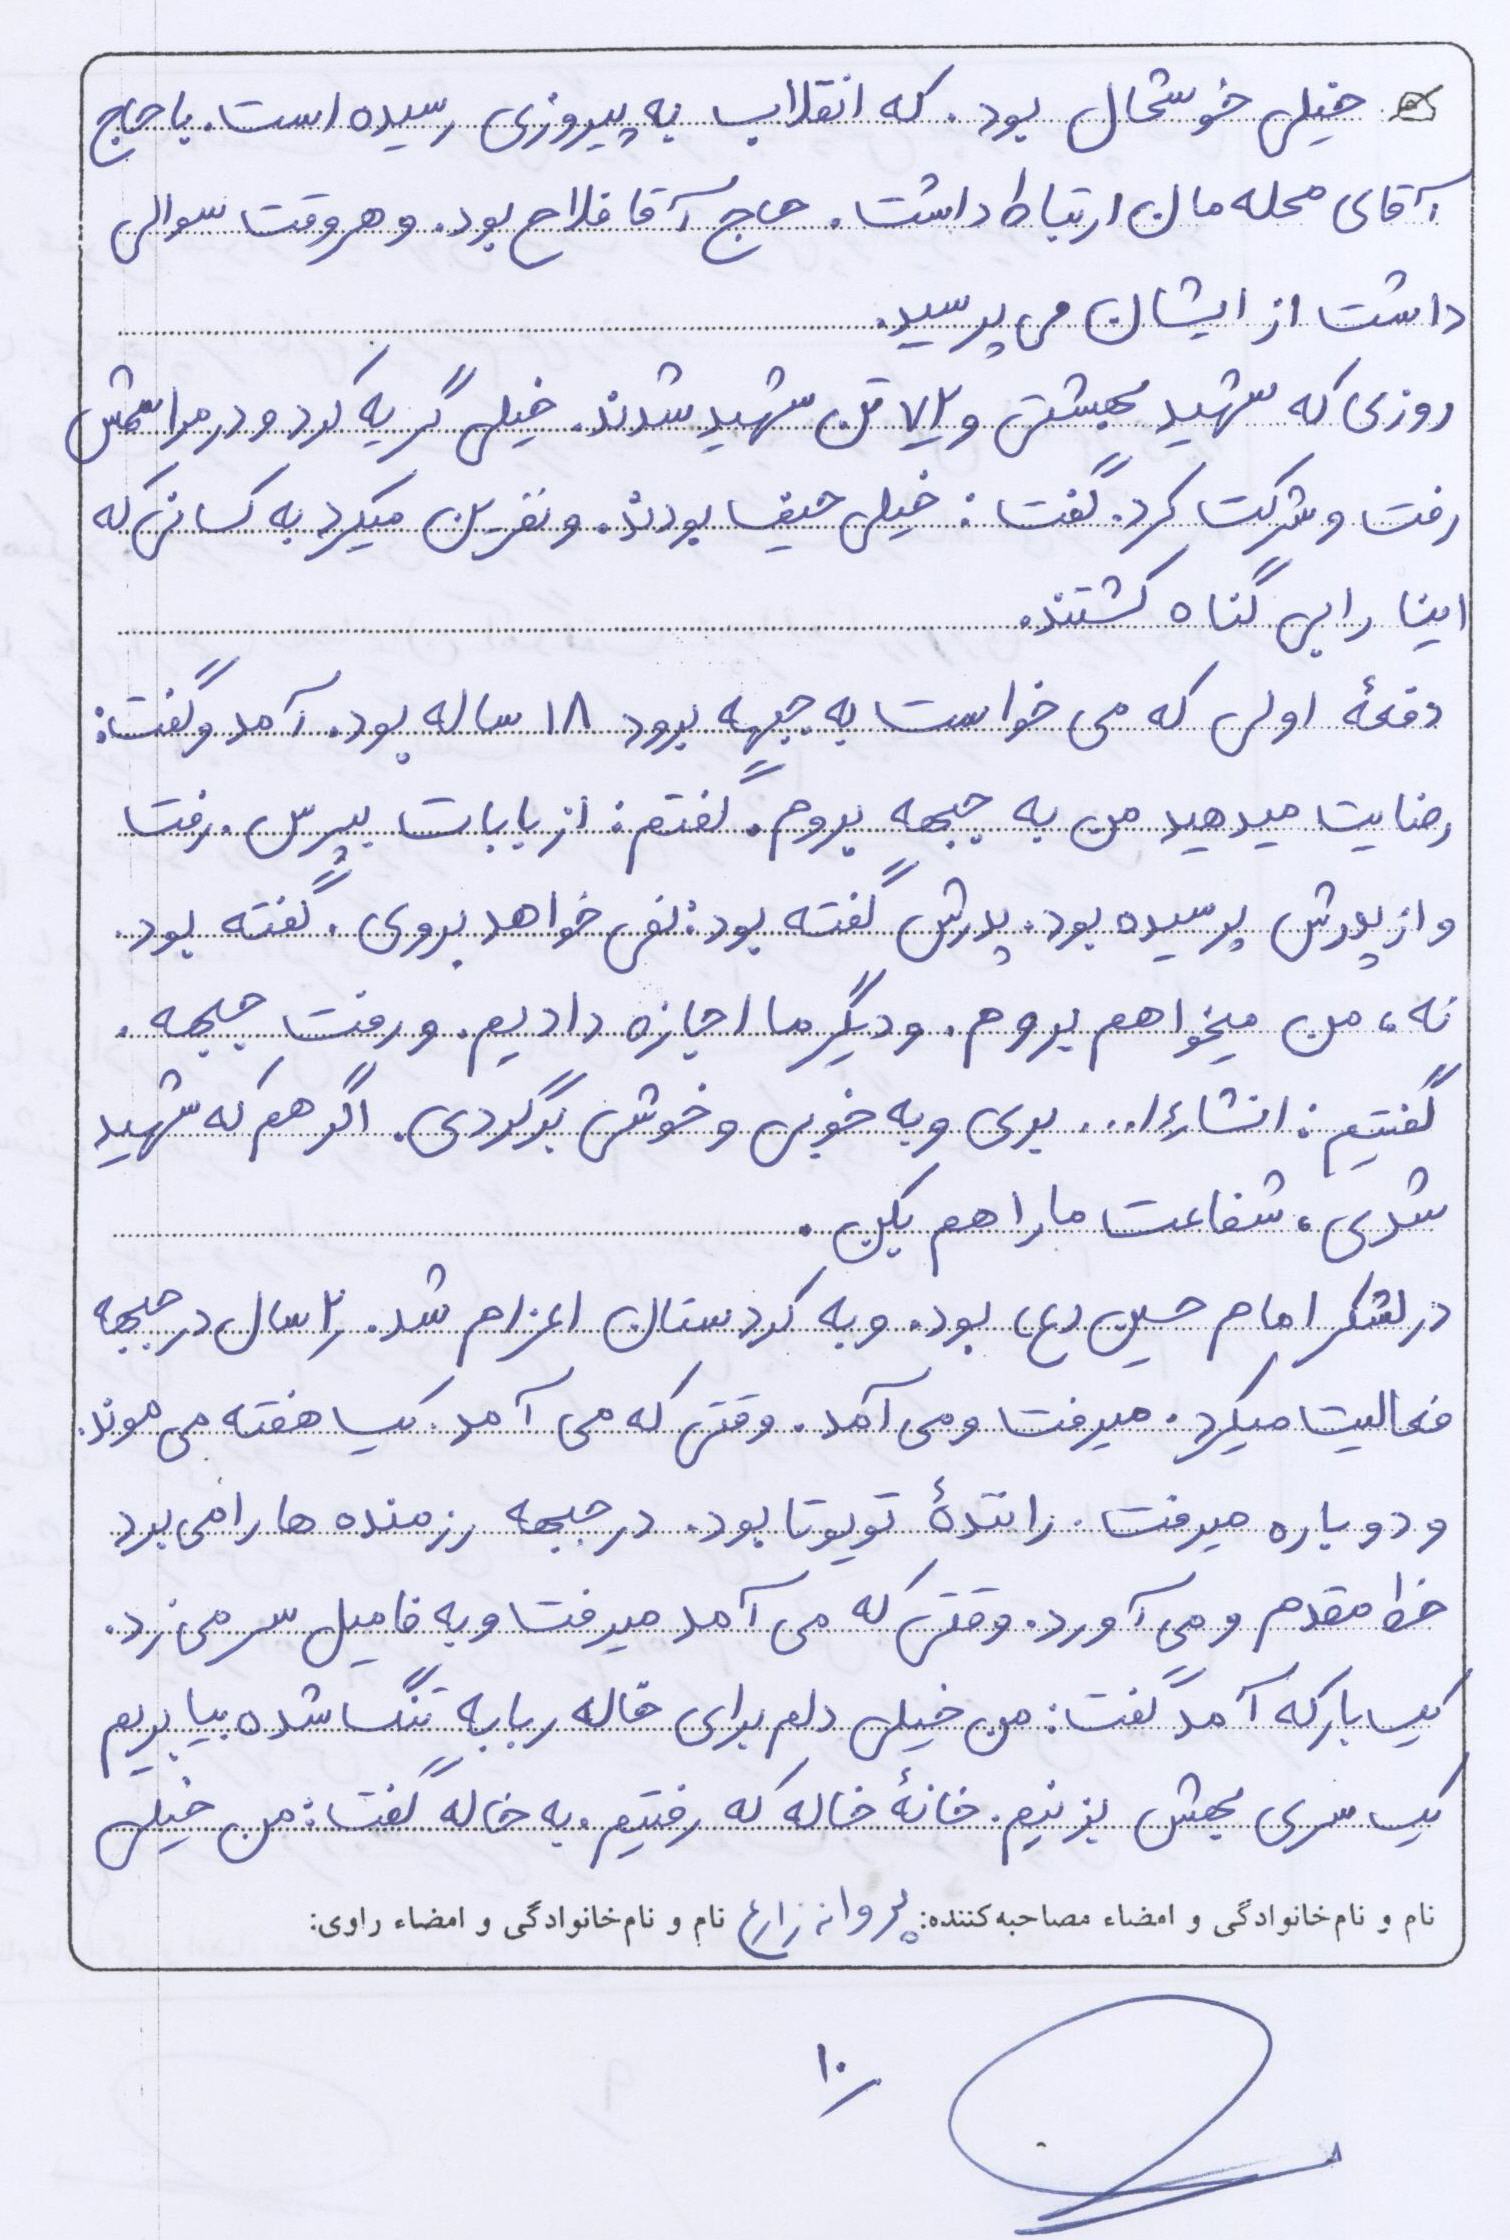 خیلی خوشحال بود. که انقلاب به پیروزی رسیده است. با حاج
آقای محله مان ارتباط داشت. حاج آقا فلاح بود. و هر وقت سوالی
داشت از ایشان می پرسید.
روزی که شهید بهشتی و ۷۲ تن شهید شدند. خیلی گریه کرد و در مراسمش
رفت و شرکت کرد. گفت: خیلی حیف بودند. و نفرین میکرد به کسانی که
اینا را بی گناه کشتند.
دفعهٔ اولی که می خواست به جبهه برود ۱۸ ساله بود. آمد و گفت:
رضایت میدهید من به جبهه بروم. گفتم: از بابات بپرس. رفت
و از پدرش پرسیده بود. پدرش گفته بود: نمی خواهد بروی. گفته بود.
نه، من میخواهم بروم. و دیگر ما اجازه دادیم. و رفت جبهه.
گفتیم: انشاءا... بری و به خوبی و خوشی برگردی. اگر هم که شهید
شدی، شفاعت ما را هم بکن.
در لشکر امام حسین (ع) بود. و به کردستان اعزام شد. ۲ سال در جبهه
فعالیت میکرد. میرفت و می آمد. وقتی که می آمد. یک هفته می موند.
و دوباره میرفت. رانندهٔ تویوتا بود. در جبهه رزمنده ها را می برد
خط مقدم و می آورد. وقتی که می آمد میرفت و به فامیل سر می زد.
یک بار که آمد گفت: من خیلی دلم برای خاله ربابه تنگ شده بیا بریم
یک سری بهش بزنیم. خانهٔ خاله که رفتیم. به خاله گفت: من خیلی
نام و نام خانوادگی و امضاء مصاحبه کننده: پروانه زارع نام و نام خانوادگی و امضاء راوی:
۱۰